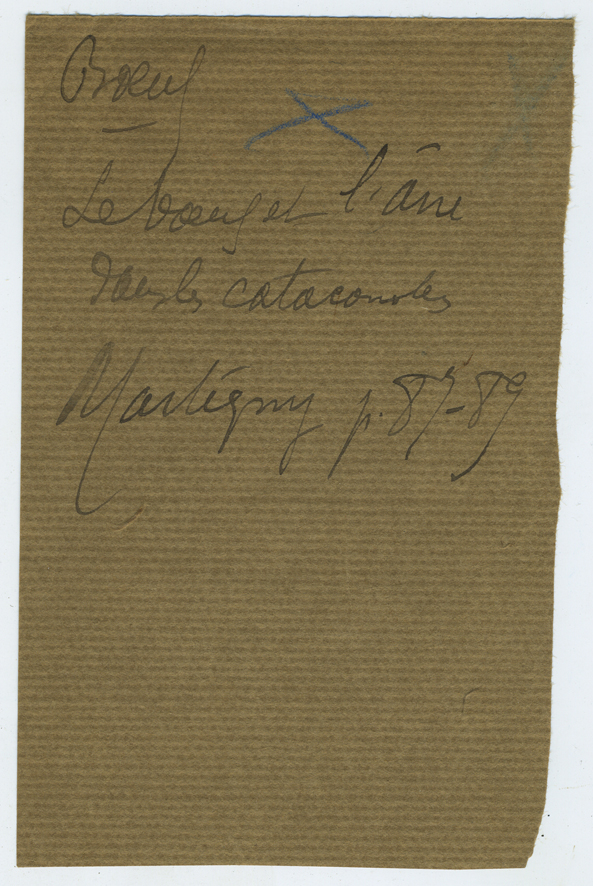 Bœuf
Le bœuf et l'âne
dans les catacombes
Martigny p. 87-89